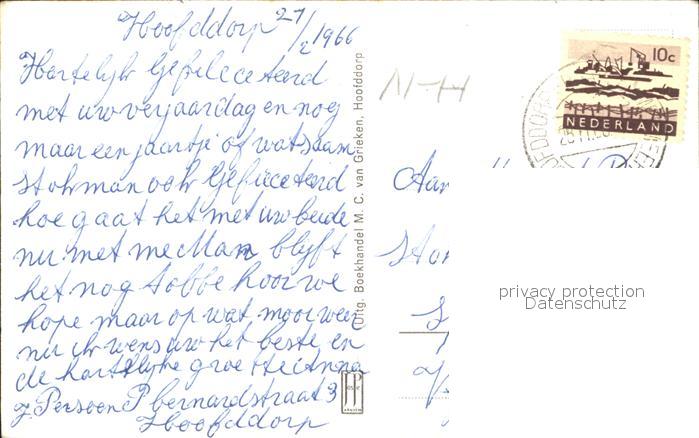 Hoofddorp 27/2 1966
Hartelijk Gefeleceteerd
met uw verjaardag en nog
maar een jaartje of wat saam
man ook Gefeleceteerd
hoe gaat het met uw beide
nu met me Man blyft
het nog tobbe hoor we
hope maar op wat mooi weer
nu ik wens uw het beste en
de hartelijke groete Anna
Persoon P bernardstraat 3
Hoofddorp
Uitg. Boekhandel M. C. van Grieken, Hoofddorp
10c
NEDERLAND
Aan
privacy protection
Datenschutz